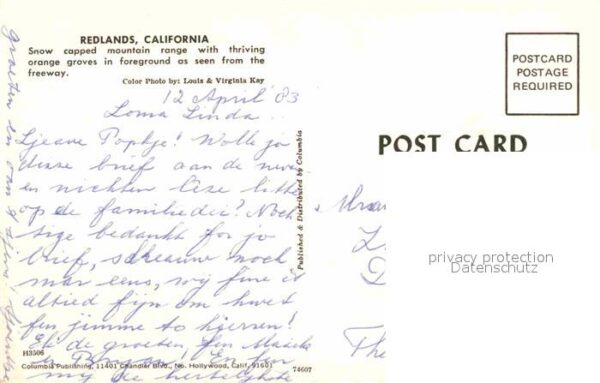 REDLANDS, CALIFORNIA
Snow capped mountain range with thriving
orange groves in foreground as seen from the
freeway.
Color Photo by: Louis & Virginia Kay
POSTCARD
POSTAGE
REQUIRED
12 April '83
Loma Linda
Ljeave Popkje! Wolle jo
disse brief oan de neven
en nichten lêze litte
op de familiedei? Noch
tige bedankt for jo
brief, skreauwe noch
mar eens, wy fine it
altied fijn om hwet
fen jimme to hjerren!
Ek de groeten fen
En fen
my de hertelykste
groeten en
POST CARD
Mra
privacy protection
Datenschutz
Published & Distributed by Columbia
H3506
Columbia Publishing, 11401 Chandler Blvd., No. Hollywood, Calif. 91601
74607